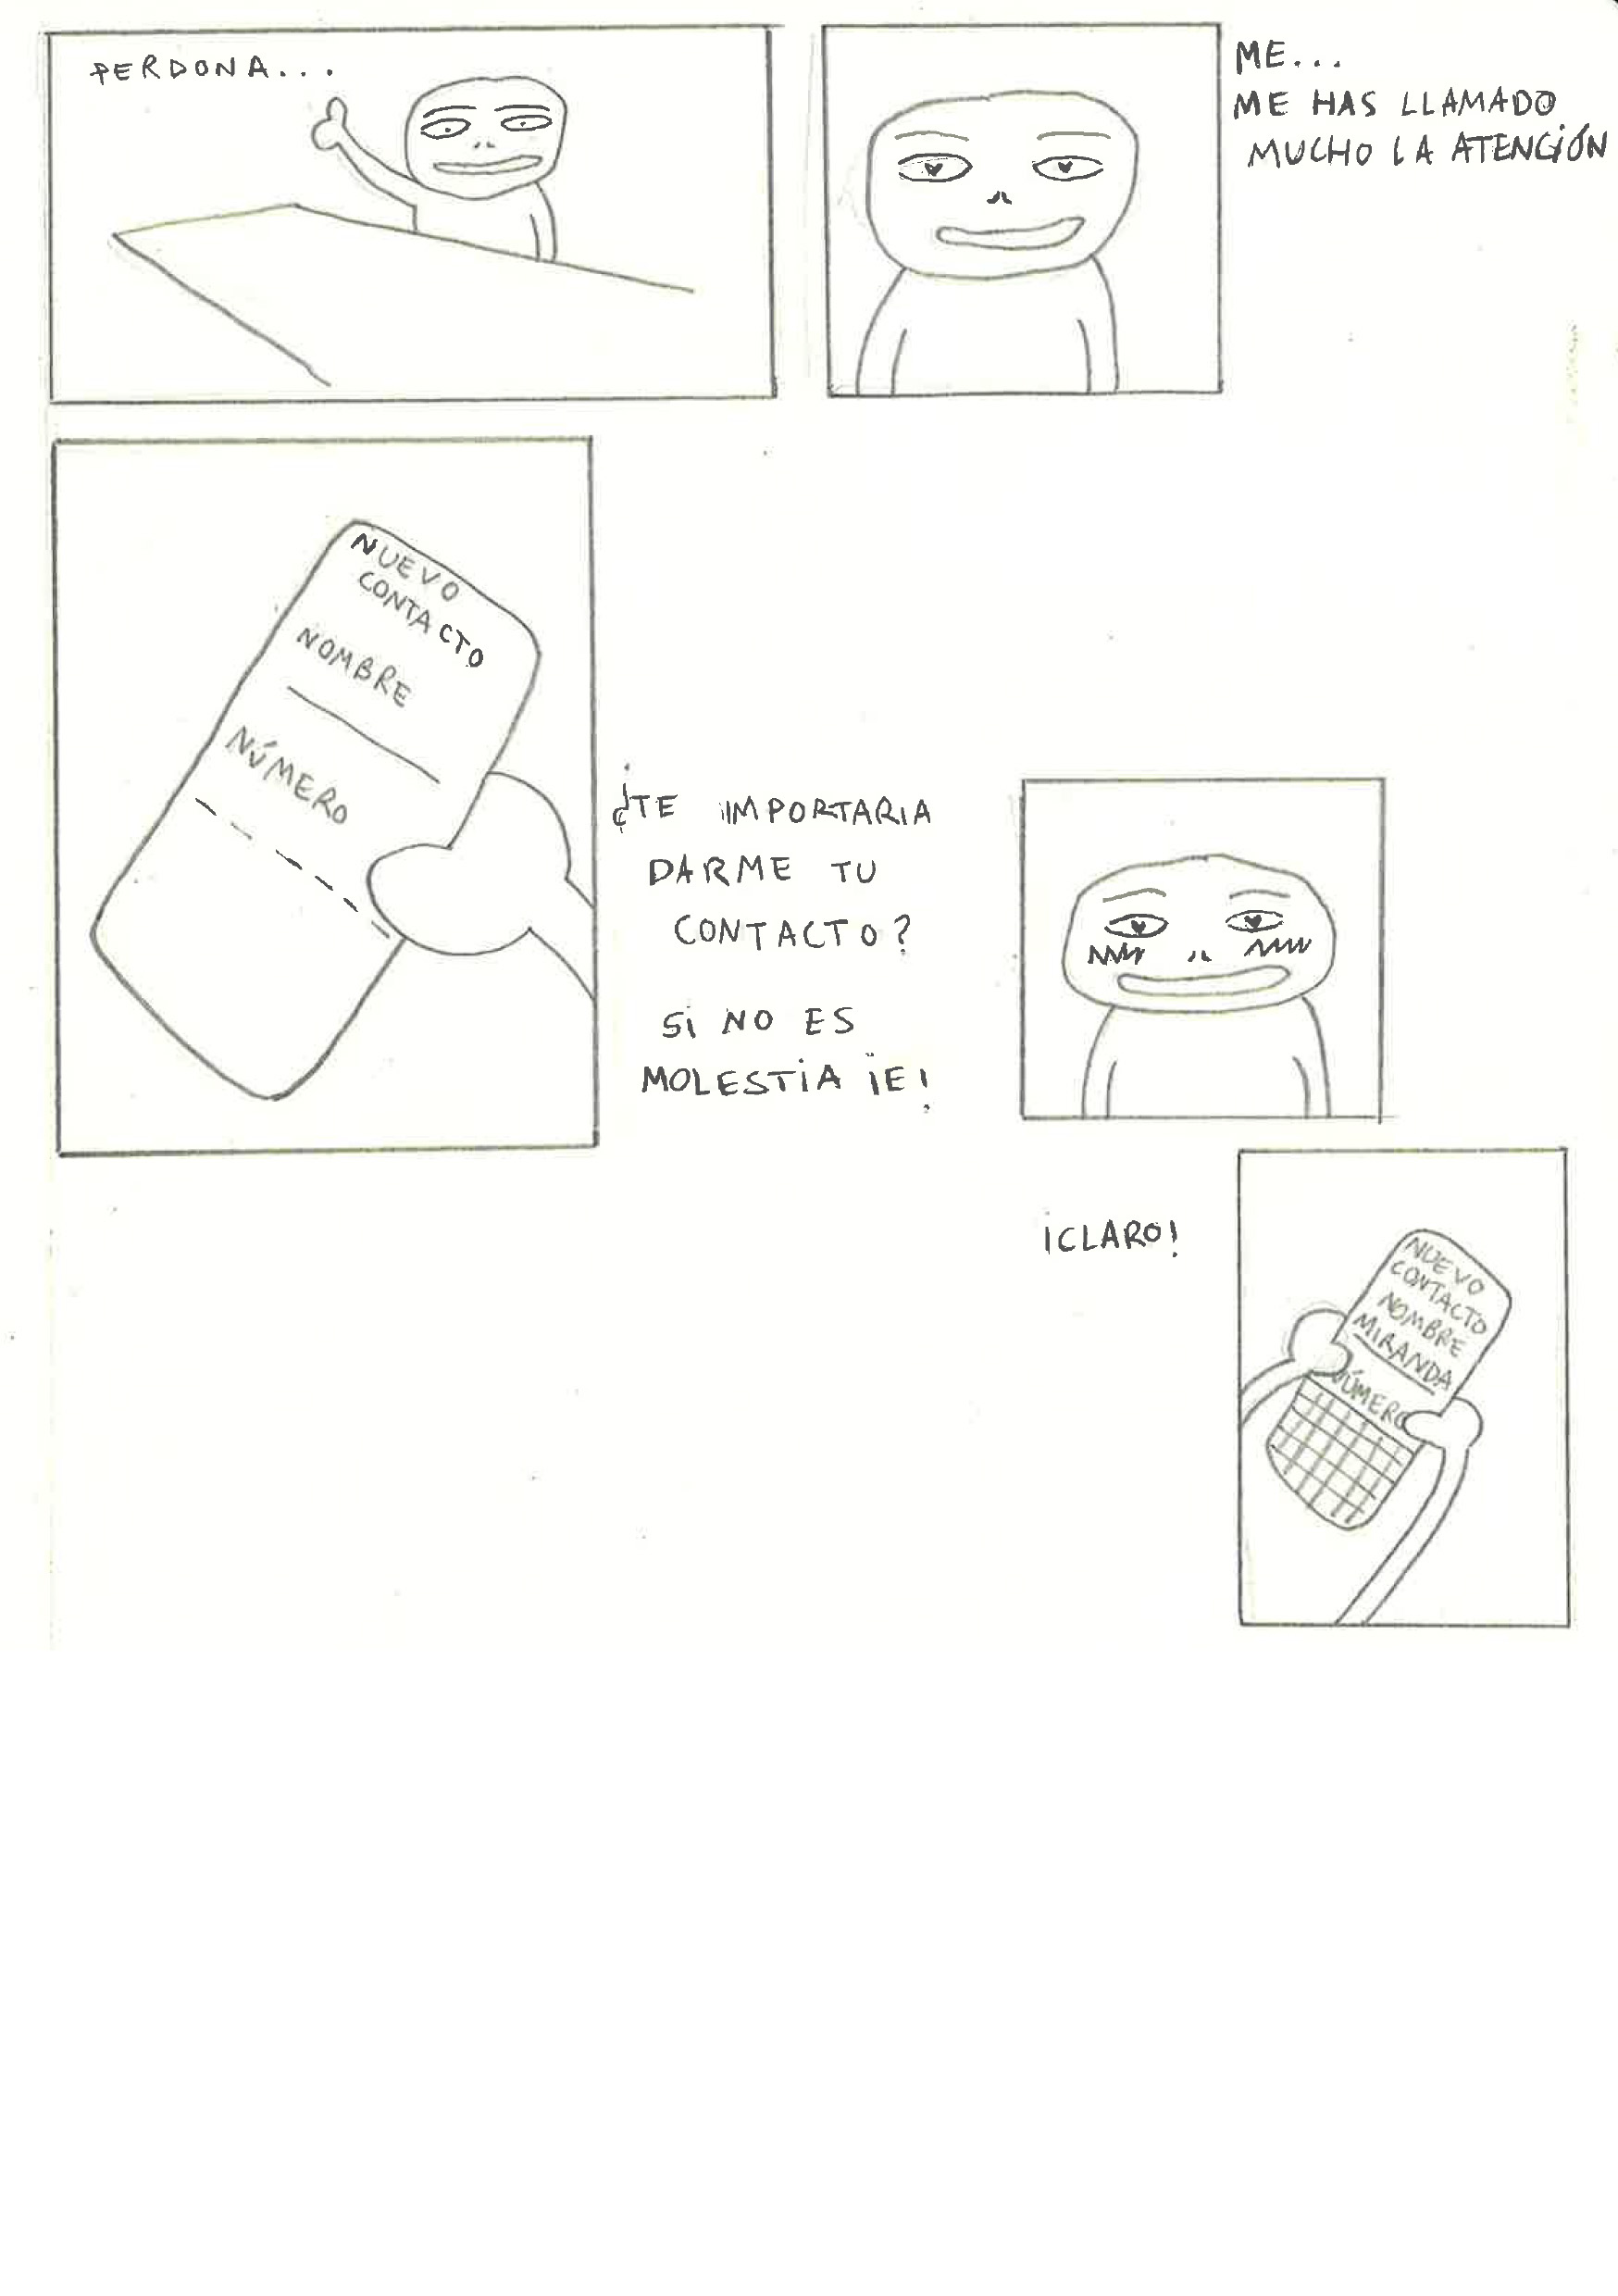 PERDONA...
ME...
ME HAS LLAMADO
MUCHO LA ATENCIÓN
NUEVO
CONTACTO
NOMBRE
NÚMERO
¿TE IMPORTARIA
DARME TU
CONTACTO?
SI NO ES
MOLESTIA ¡E!
¡CLARO!
NUEVO
CONTACTO
NOMBRE
MIRANDA
NÚMERO